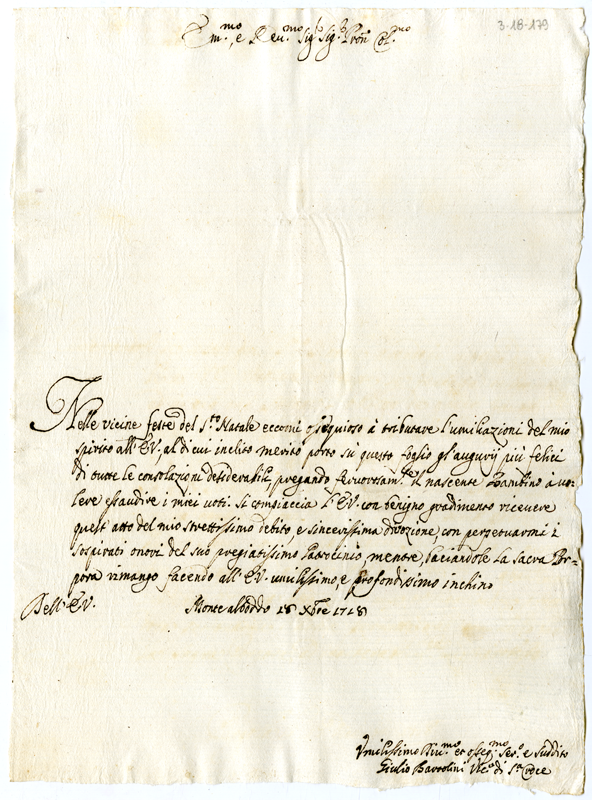 3-18-179
Em.mo, e Reu.mo Sig.r Sig.r Pron Col.mo
Nelle vicine feste del S.to Natale eccomi ossequioso à tributare l'umiliazioni del mio
spirito all'E.V. al di cui inclito merito porto sù questo foglio gl'augurij più felici
di tutte le consolazioni desiderabili, pregando fervorosam.te il nascente Bambino a uo-
lere essaudire i miei uoti. Si compiaccia l'E.V. con benigno gradimento ricevere
quest'atto del mio strettissimo debito, e sincerissima divozione, con perpetuarmi i
sospirati onori del suo pregiatissimo Patrocinio, mentre, baciandole la Sacra Por-
pora rimango facendo all'E.V. umilissimo, e profondissimo inchino
Dell'E.V. Monte alboddo 18 Xbre 1718
Vmilissimo Diu.mo et osseq.mo Ser.e e Suddito
Giulio Bartolini Vic.o di S.ta Croce